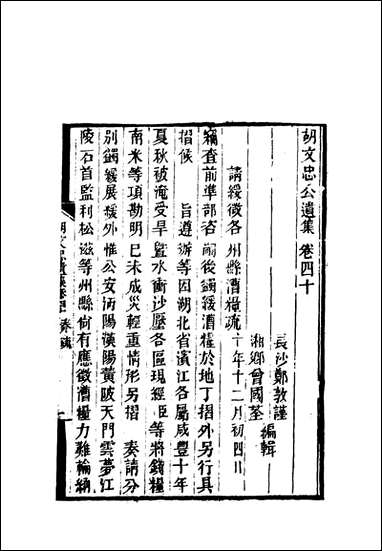 胡文忠公遺集卷四十
長沙鄭敦謹
湘鄉曾國荃
編輯
請緩徵各州縣漕糧疏 十年十二月初四日
竊查前準部咨嗣後蠲緩漕糧於地丁摺外另行具
摺候 旨遵辦等因湖北省濱江各屬咸豐十年
夏秋被淹受旱暨水衝沙壓各區現經臣等將錢糧
南米等項勘明已未成災輕重情形另摺 奏請分
別蠲緩展緩外惟公安沔陽漢陽黃陂天門雲夢江
陵石首監利松滋等州縣尚有應徵漕糧力難輸納